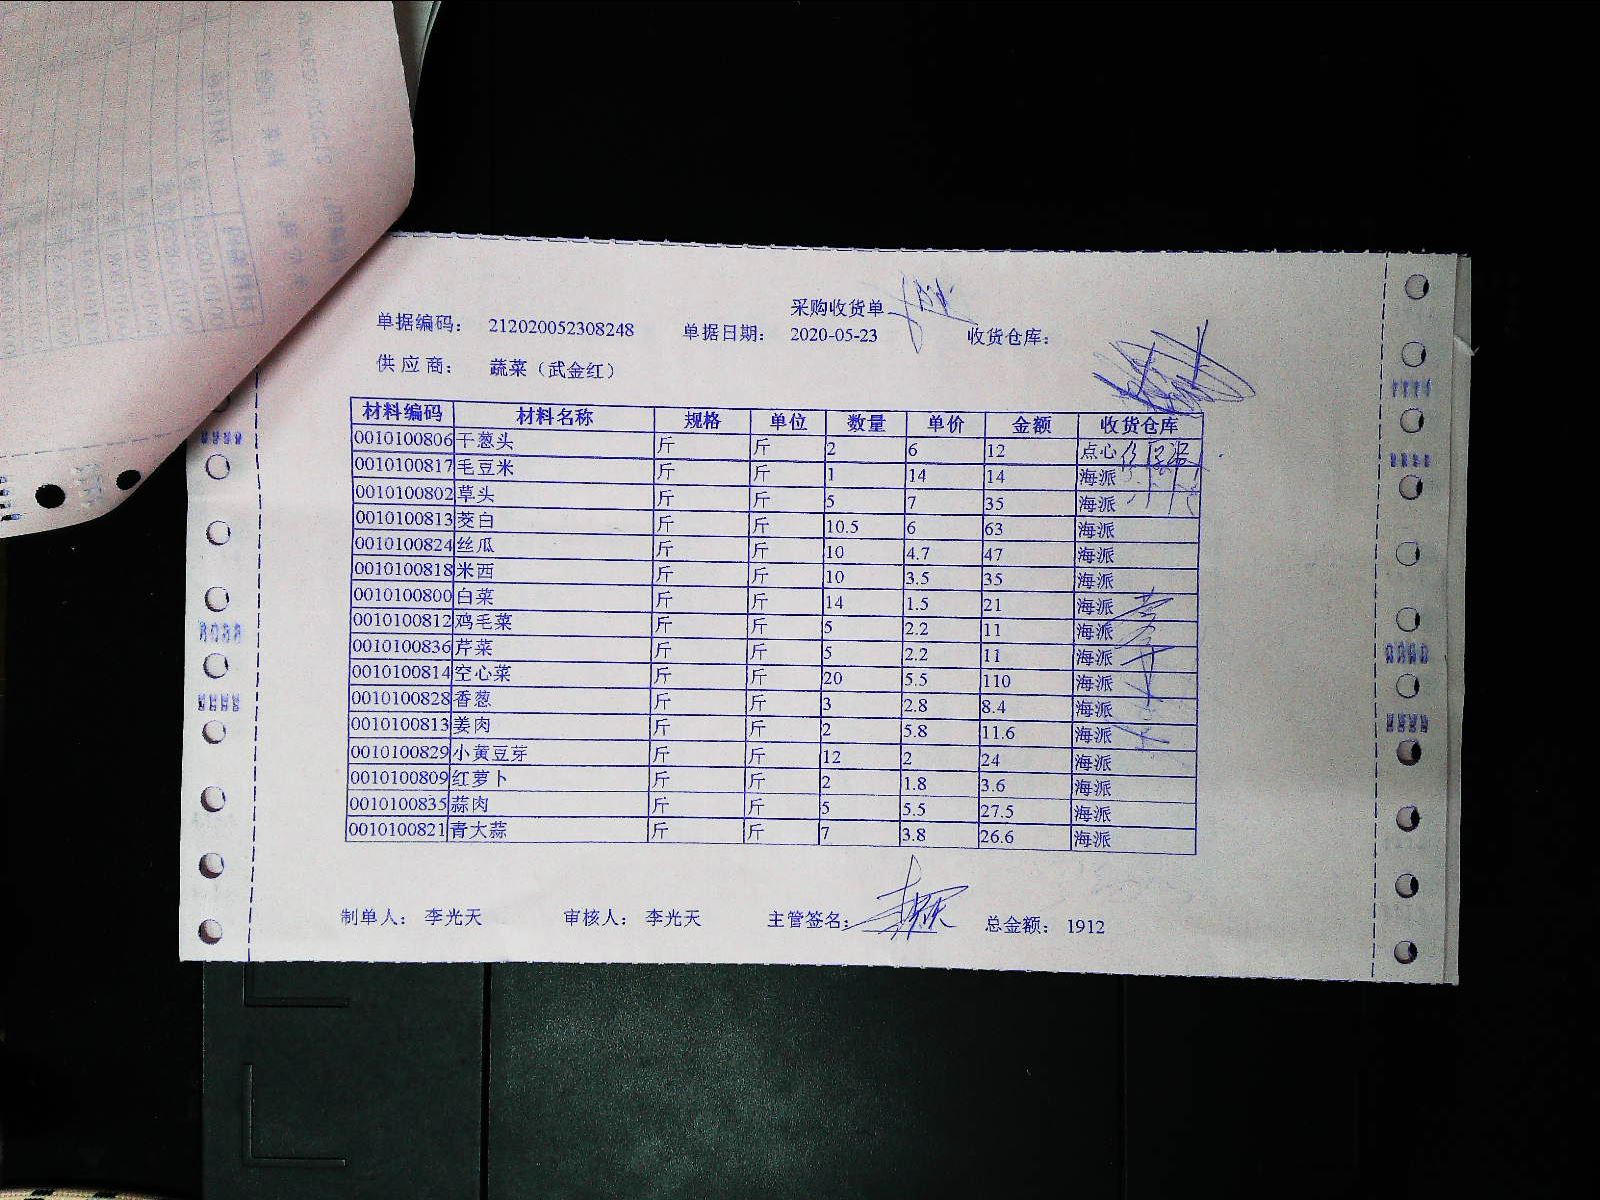 采购收货单
单据编码： 212020052308248 单据日期： 2020-05-23 收货仓库：
供 应 商： 蔬菜（武金红）
材料编码 材料名称 规格 单位 数量 单价 金额 收货仓库
0010100806 干葱头 斤 斤 2 6 12 点心
0010100817 毛豆米 斤 斤 1 14 14 海派
0010100802 草头 斤 斤 5 7 35 海派
0010100813 茭白 斤 斤 10.5 6 63 海派
0010100824 丝瓜 斤 斤 10 4.7 47 海派
0010100818 米西 斤 斤 10 3.5 35 海派
0010100800 白菜 斤 斤 14 1.5 21 海派
0010100812 鸡毛菜 斤 斤 5 2.2 11 海派
0010100836 芹菜 斤 斤 5 2.2 11 海派
0010100814 空心菜 斤 斤 20 5.5 110 海派
0010100828 香葱 斤 斤 3 2.8 8.4 海派
0010100813 姜肉 斤 斤 2 5.8 11.6 海派
0010100829 小黄豆芽 斤 斤 12 2 24 海派
0010100809 红萝卜 斤 斤 2 1.8 3.6 海派
0010100835 蒜肉 斤 斤 5 5.5 27.5 海派
0010100821 青大蒜 斤 斤 7 3.8 26.6 海派
制单人： 李光天 审核人： 李光天 主管签名： 总金额： 1912